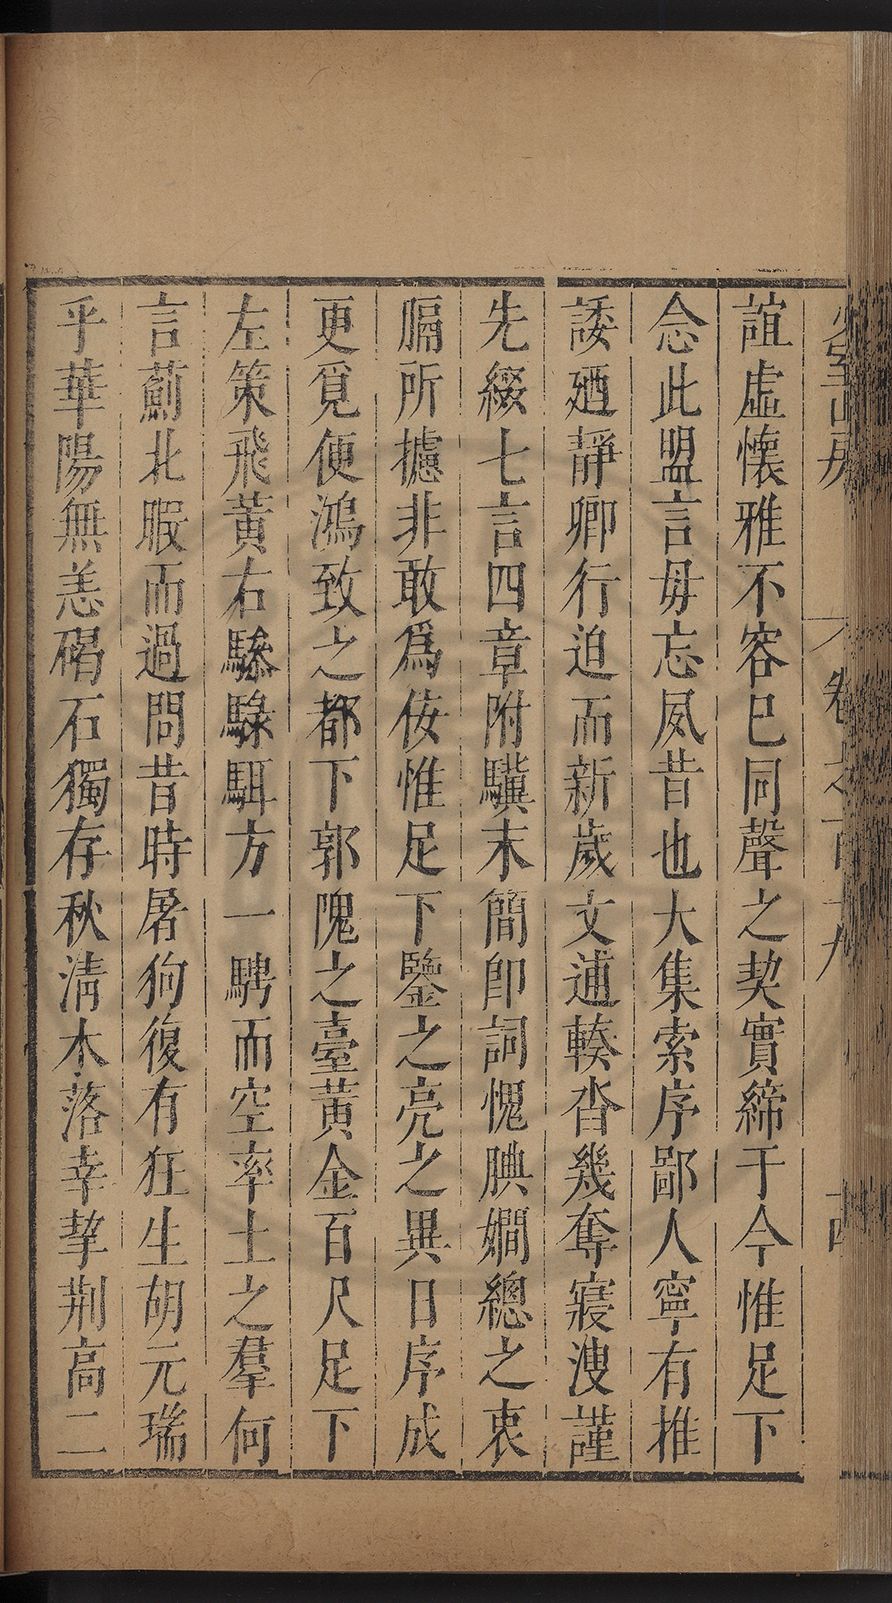 少室山房 卷之百十九 十四
誼虛懷雅不容已同聲之契實締于今惟足下
念此盟言毋忘夙昔也大集索序鄙人寧有推
諉廼靜卿行迫而新歲文逋輳沓幾奪寢溲謹
先綴七言四章附驥末簡卽詞愧腆嫺總之衷
膈所攄非敢爲佞惟足下鑒之亮之異日序成
更覓便鴻致之都下郭隗之臺黃金百尺足下
左策飛黃右驂騄駬方一騁而空率土之羣何
言薊北暇而過問昔時屠狗復有狂生胡元瑞
乎華陽無恙碣石獨存秋淸木落幸挈荆高二